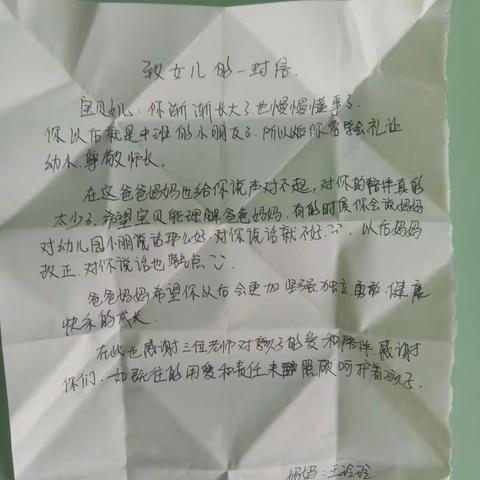 致女儿的一封信.
宝贝儿,你渐渐长大了也慢慢懂事了.
你以后就是中班的小朋友了.所以你要学会礼让
幼小.尊敬师长.
在这爸爸妈妈也给你说声对不起,对你的陪伴真的
太少了,希望宝贝能理解爸爸妈妈.有的时候你会说妈妈
对幼儿园小朋友说话那么好.对你说话就不好.以后妈妈
改正.对你说话也好点
爸爸妈妈希望你以后会更加坚强独立勇敢.健康
快乐的成长.
在此也感谢三位老师对孩子的爱和陪伴.感谢
你们.一如既往的用爱和责任来照顾呵护着孩子.
妈妈:王玲玲